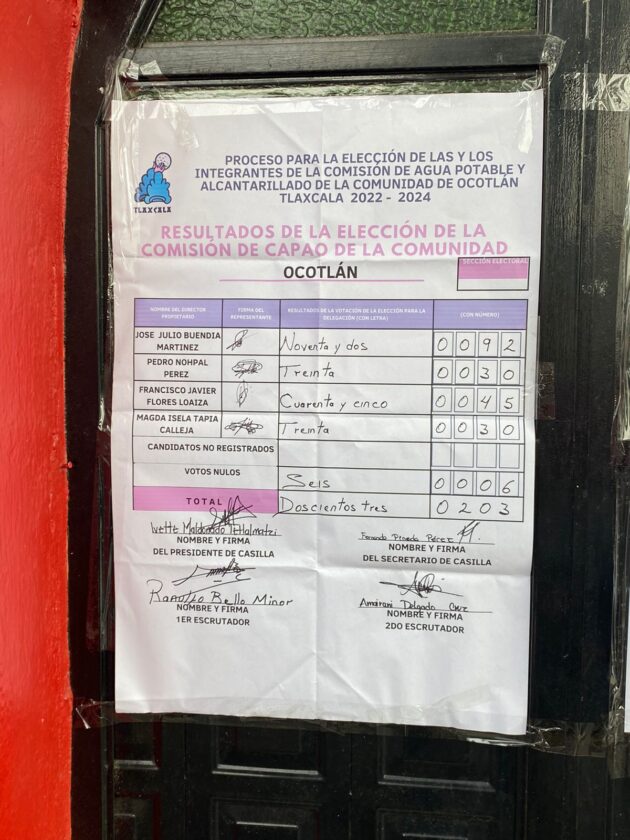 PROCESO PARA LA ELECCIÓN DE LAS Y LOS
INTEGRANTES DE LA COMISIÓN DE AGUA POTABLE Y
ALCANTARILLADO DE LA COMUNIDAD DE OCOTLÁN
TLAXCALA 2022 - 2024
TLAXCALA
RESULTADOS DE LA ELECCIÓN DE LA
COMISIÓN DE CAPAO DE LA COMUNIDAD
OCOTLÁN
SECCIÓN ELECTORAL
NOMBRE DEL DIRECTOR PROPIETARIO
FIRMA DEL REPRESENTANTE
RESULTADOS DE LA VOTACIÓN DE LA ELECCIÓN PARA LA DELEGACIÓN (CON LETRA)
(CON NÚMERO)
JOSE JULIO BUENDIA MARTINEZ Noventa y dos 0 0 9 2
PEDRO NOHPAL PEREZ Treinta 0 0 3 0
FRANCISCO JAVIER FLORES LOAIZA Cuarenta y cinco 0 0 4 5
MAGDA ISELA TAPIA CALLEJA Treinta 0 0 3 0
CANDIDATOS NO REGISTRADOS
VOTOS NULOS Seis 0 0 0 6
TOTAL Doscientos tres 0 2 0 3
Ivette Maldonado
NOMBRE Y FIRMA
DEL PRESIDENTE DE CASILLA
Fernando Pineda Pérez
NOMBRE Y FIRMA
DEL SECRETARIO DE CASILLA
Bello Minor
NOMBRE Y FIRMA
1ER ESCRUTADOR
Amairani Delgado Cruz
NOMBRE Y FIRMA
2DO ESCRUTADOR